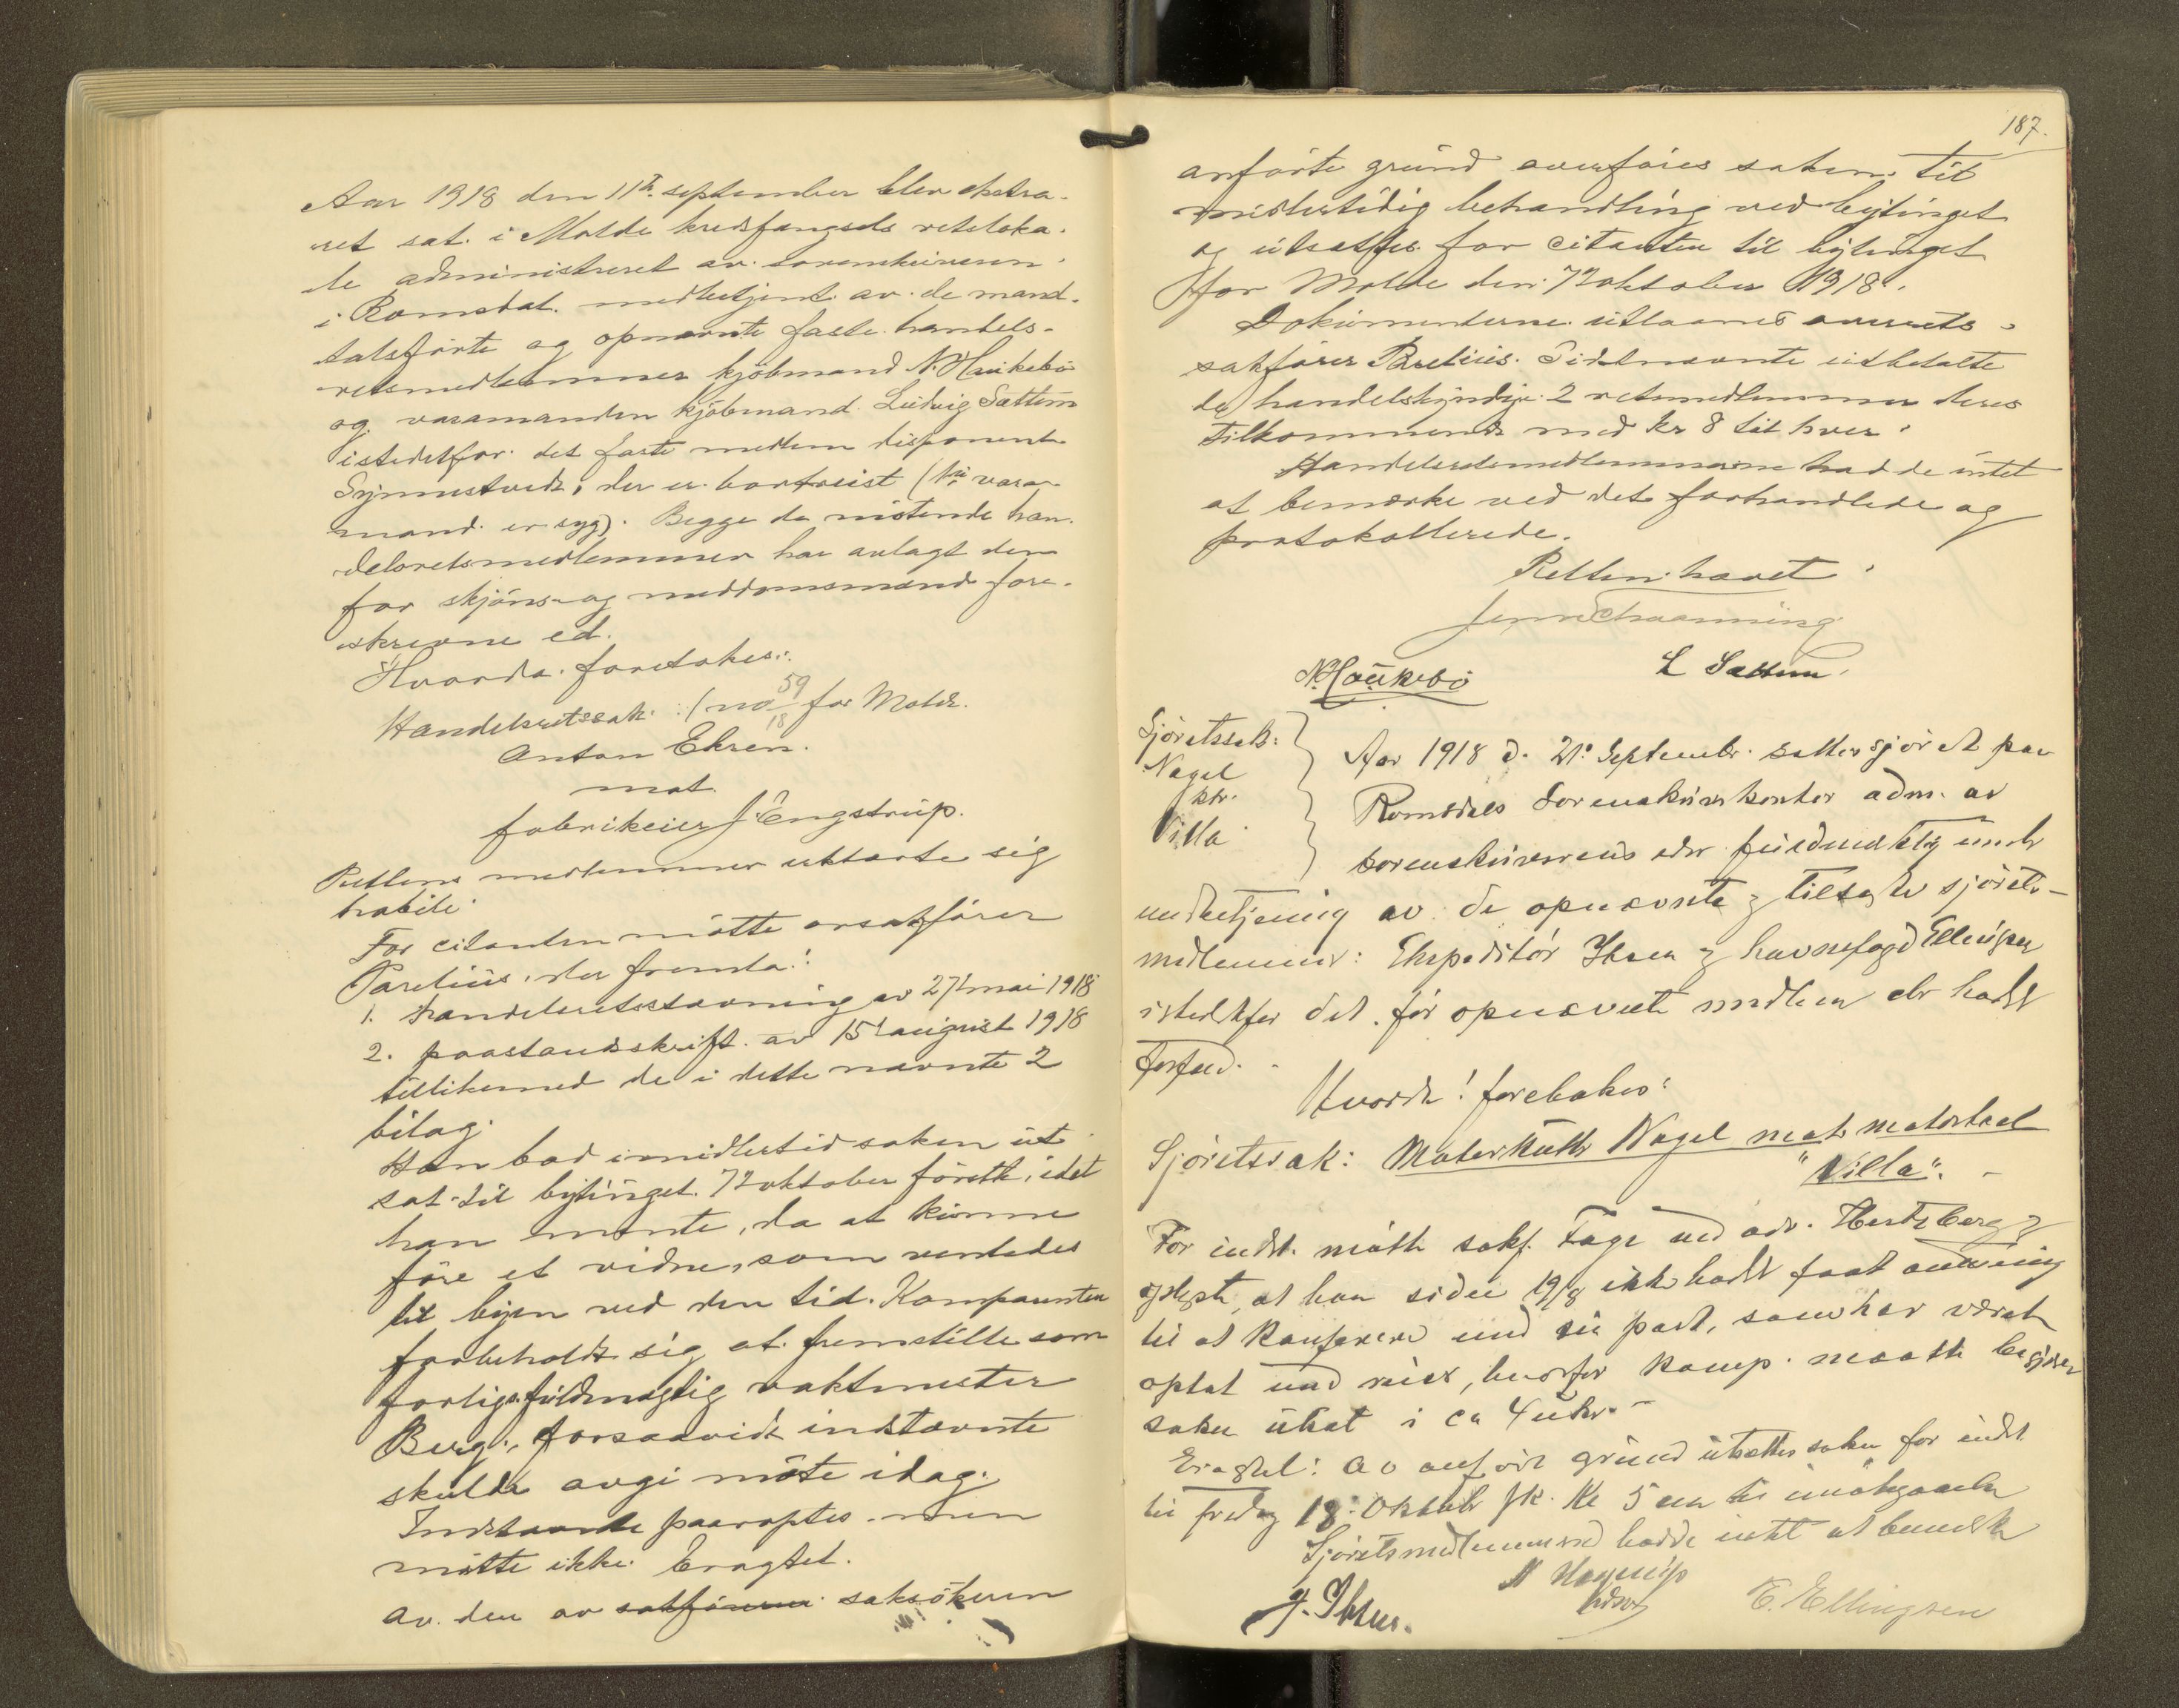 Aar 1918 den 11te september blev ekstra-
ret sat i Molde kredsfængsels retsloka-
le administreret av sorenskriveren
i Romsdal medbetjent av de mand-
talsførte og opnævnte faste handels-
retsmedlemmer kjøbmand N. Haukebø
og varamanden kjøbmand Ludvig Sættem
istedetfor det faste medlem disponent
der er bortreist (1ste vara-
mand er syg). Begge de møtende han-
delsretsmedlemmer har avlagt den
for skjøns- og meddomsmænd fore-
skrevne ed.
Hvorda foretokes:
Handelsretssak: (no 59/18 for Molde.
Anton Ekren.
mot
fabrikeier J. Engstrup.
Rettens medlemmer erklærte sig
habile.
For citanten møtte orsakfører
Parelius, der fremla:
1. handelsretsstævning av 27de mai 1918
2. paastandsskrift av 15de august 1918
tillikemed de i dette nævnte 2
bilag.
Han bad imidlertid saken ut-
sat til bytinget 7de oktober førstk., idet
han mente, da at kunne
føre et vidne, som ventedes
til byen ved den tid. Komparenten
forbeholdt sig at fremstille som
forligsfuldmægtig vaktmester
Berg, forsaavidt indstævnte
skulde avgi møte idag.
Indstævnte paaroptes men
møtte ikke. Eragtet.
Av den av sakføreren saksøkeren
187.
anførte grund overføres saken til
midlertidig behandling ved bytinget
og utsættes for citanten til bytinget
for Molde den 7de oktober 1918.
Dokumenterne utlaanes overrets-
sakfører Parelius. Sidstnævnte utbetalte
de handelskyndige 2 retsmedlemmer deres
tilkommende med kr 8 til hver.
Handelsretsmedlemmerne hadde intet
at bemærke ved det forhandlede og
protokollerede.
Retten hævet.
N. Haukebø
L Sættem
Sjøretssak:
Nagel
ktr.
Villa
Aar 1918 d. 21. Septembr. sattes sjøret paa
Romsdals Sorenskriverkontor adm. av
sorenskriverens edsv. fuldmektig under
medbetjening av de opnævnte og tilsagte sjørets-
medlemmer: Ekspeditør Ibsen og havnefogd Ellingsen
istedetfor det før opnævnte medlem der hadde
forfald.
Hvorda! foretokes:
Sjøretssak: Motorkutter Nagel mot motorbaat
"Villa".
For indst. møtte sakf. Fage ved adv. Hertzberg og
oplyste, at han siden 19/8 ikke hadde faat anledning
til at konferere med sin part, som har været
optat med reiser, hvorfor komp. maatte begjære
saken utsat i ca 4 uker.
Eragtet: Av anført grund utsættes saken for indst.
til fredag 18. Oktober fk. Kl 5 em til imøtegaaelse
Sjøretsmedlemmerne hadde intet at bemerke
J. Ibsen.
edsv
E. Ellingsen